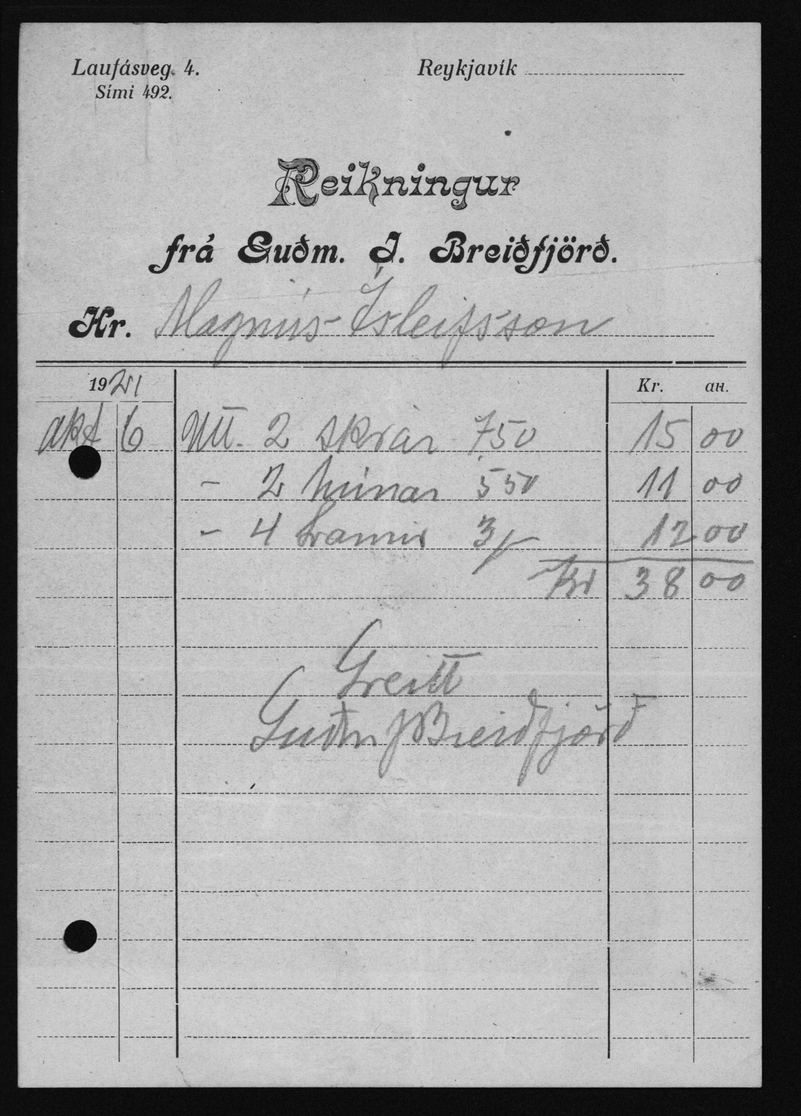 Laufásveg 4.
Sími 492.
Reykjavík
Reikningur
frá Guðm. J. Breiðfjörð.
Hr. Magnús Ísleifsson
1921 Kr. au.
okt 6 Útt. 2 skrár 750 15 00
- 2 húnar 550 11 00
- 4 3/- 12 00
Kr 38 00
Greitt
Guðm J Breiðfjörð